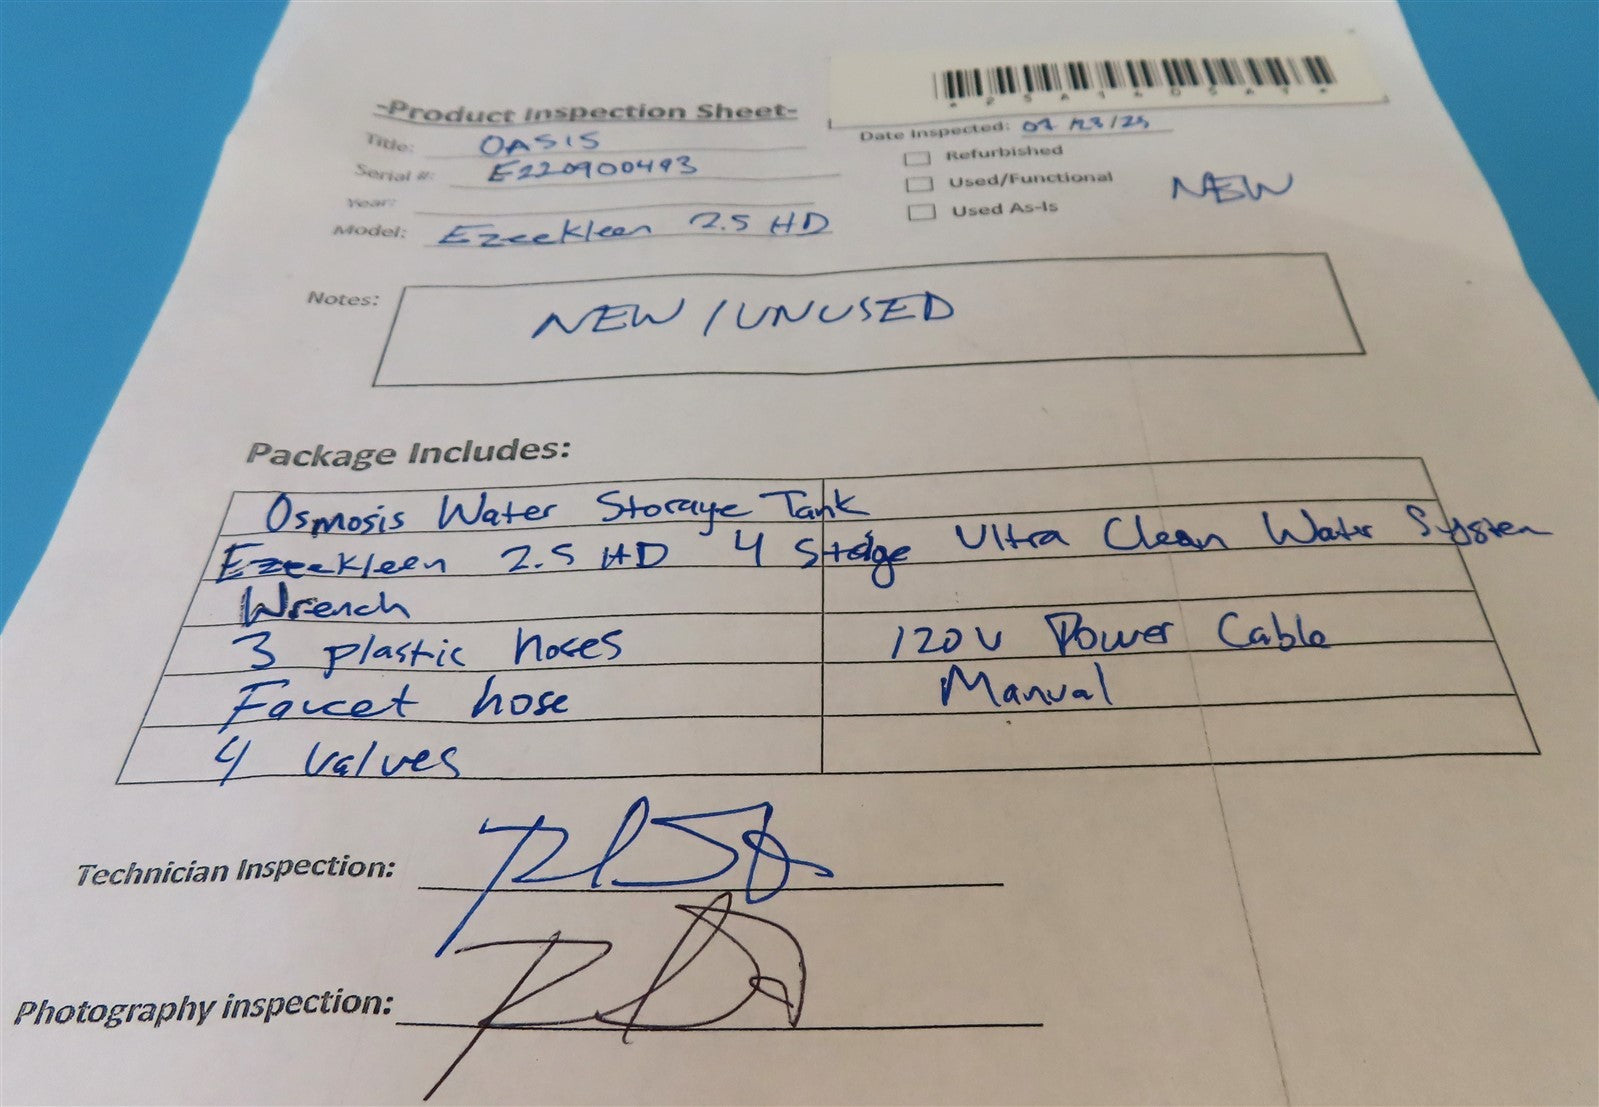 -Product Inspection Sheet-
Title: OASIS
Serial #: E220900493
Year:
Model: Ezeekleen 2.5 HD
Date Inspected:
Refurbished
Used/Functional
Used As-Is
NEW
Notes: NEW / UNUSED
Package Includes:
Osmosis Water Storage Tank
Ezeekleen 2.5 HD 4 Stage Ultra Clean Water System
Wrench
3 plastic hoses 120V Power Cable
Faucet hose Manual
4 valves
Technician Inspection:
Photography inspection: